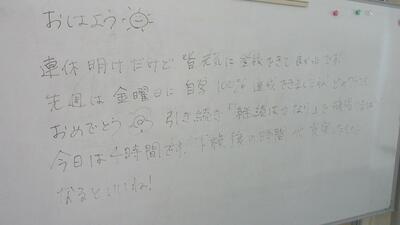 おはよう
連休明けだけど 皆元気に学校きて良かったです
先週は金曜日に自習100% 達成できました
おめでとう 引き続き「継続は力なり」
今日は4時間です。下校後の時間
なるといいね!